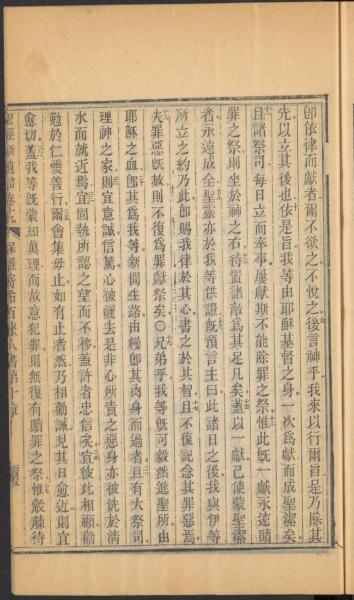 卽依律而獻者爾不欲之不悅之後言神乎我來以行爾旨是乃除其
先以立其後也依是旨我等由耶穌基督之身一次爲獻而成聖潔矣
且諸祭司每日立而奉事屢獻斯不能除罪之祭惟此旣一獻永遠贖
罪之祭則坐於神之右待置諸敵爲其足凡矣蓋以一獻已使蒙聖潔
者永遠成全聖靈亦於我等供證旣預言主曰此諸日之後我與伊等
所立之約乃此卽賜我律於其心書之於其智且不復記念其罪惡焉
夫罪惡旣赦則不復爲罪獻祭矣○兄弟乎我等旣可毅然進聖所由
耶穌之血卽其爲我等新開生路由幔卽其肉身而過者且有大祭司
理神之家則宜意誠信篤心被灑去是非心所責之惡身亦被洗於淸
水而就近焉宜固執所認之望而不移蓋許者忠信矣宜彼此相顧勸
勉於仁愛善行爾會集毋止如有止者然乃相勸誡見其日愈近則宜
愈切蓋我等旣蒙知眞理而故意犯罪則無復有贖罪之祭惟觳觫待
聖經新遺詔卷十九 保羅寄希百來人書第十章